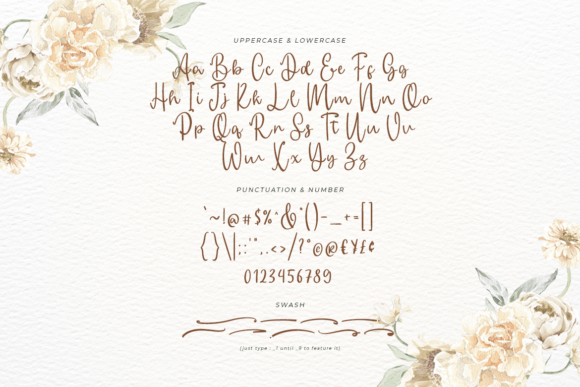 UPPERCASE & LOWERCASE
Aa Bb Cc Dd Ee Ff Gg
Hh Ii Jj Kk Ll Mm Nn Oo
Pp Qq Rr Ss Tt Uu Vv
Ww Xx Yy Zz
PUNCTUATION & NUMBER
`~!@#$%^&*()-_+=[]
{}\|;:'",.<>/?°©®€¥£¢
0123456789
SWASH
(just type : _1 until _9 to feature it)